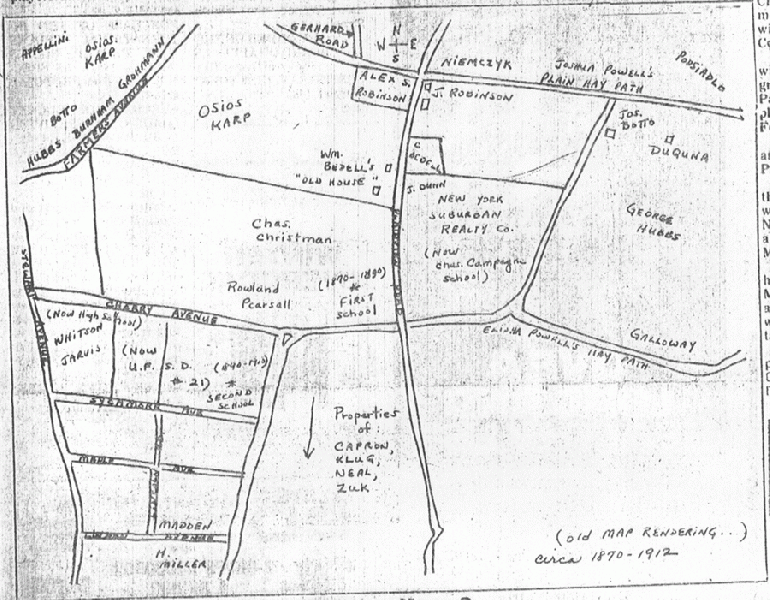 GERHARD
ROAD
N
W E
S
APPELLINI
OSIOS
KARP
BOTTO
HUBBS BURNHAM GROHMANN
FARMERS AVENUE
OSIOS
KARP
ALEX S.
ROBINSON
J. ROBINSON
NIEMCZYK
JOSHUA POWELL'S
PLAIN HAY PATH
PODSIADLO
JOS.
BOTTO
DUQUNA
WM.
BEZELL'S
"OLD HOUSE"
C
S. DUNN
NEW YORK
SUBURBAN
REALTY CO.
(NOW
chas. Campagne
school)
GEORGE
HUBBS
Chas.
christman
Rowland
Pearsall
(1870-1890)
*
FIRST
school
STEWART
AVENUE
CHERRY AVENUE
(Now High School)
WHITSON
JARVIS
(NOW
U.F. S.D.
#21)
(1890-1912)
*
SECOND
SCHOOL
ELISHA POWELL'S HAY PATH
GALLOWAY
SYCAMORE AVE
MAPLE AVE
MADDEN
AVENUE
H.
MILLER
Properties
of:
CAPRON,
KLUG,
NEAL,
ZUK
(old MAP RENDERING...)
circa 1870-1912